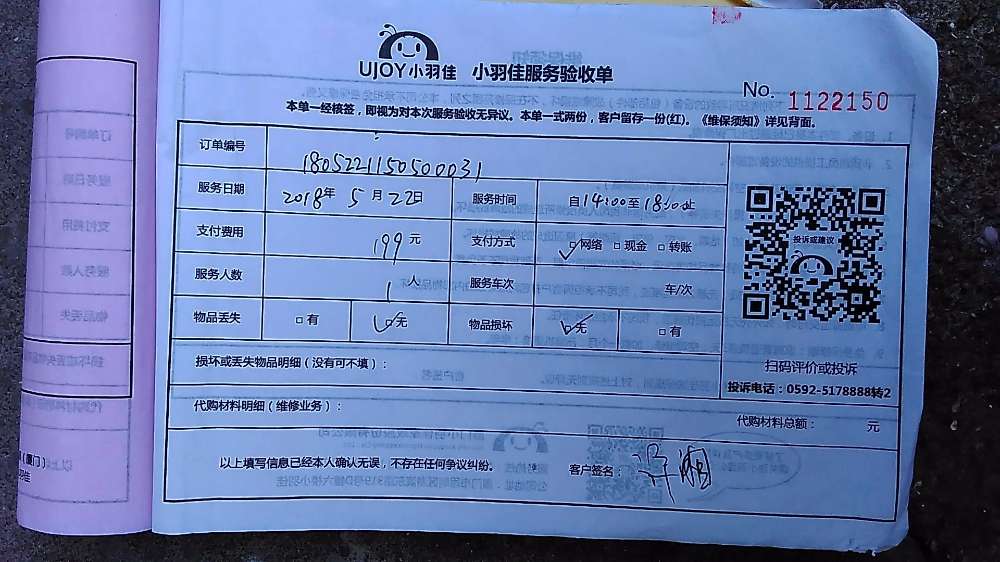 UJOY小羽佳 小羽佳服务验收单
No. 1122150
本单一经核签，即视为对本次服务验收无异议。本单一式两份，客户留存一份(红)。《维保须知》详见背面。
订单编号 180522115050031
服务日期 2018年 5月22日 服务时间 自14:00至18:00止
支付费用 199元 支付方式 网络 现金 转账
服务人数 1人 服务车次 车/次
物品丢失 有 无 物品损坏 无 有
投诉或建议
扫码评价或投诉
投诉电话：0592-5178888转2
损坏或丢失物品明细（没有可不填）：
代购材料明细（维修业务）： 代购材料总额： 元
以上填写信息已经本人确认无误，不存在任何争议纠纷。 客户签名：